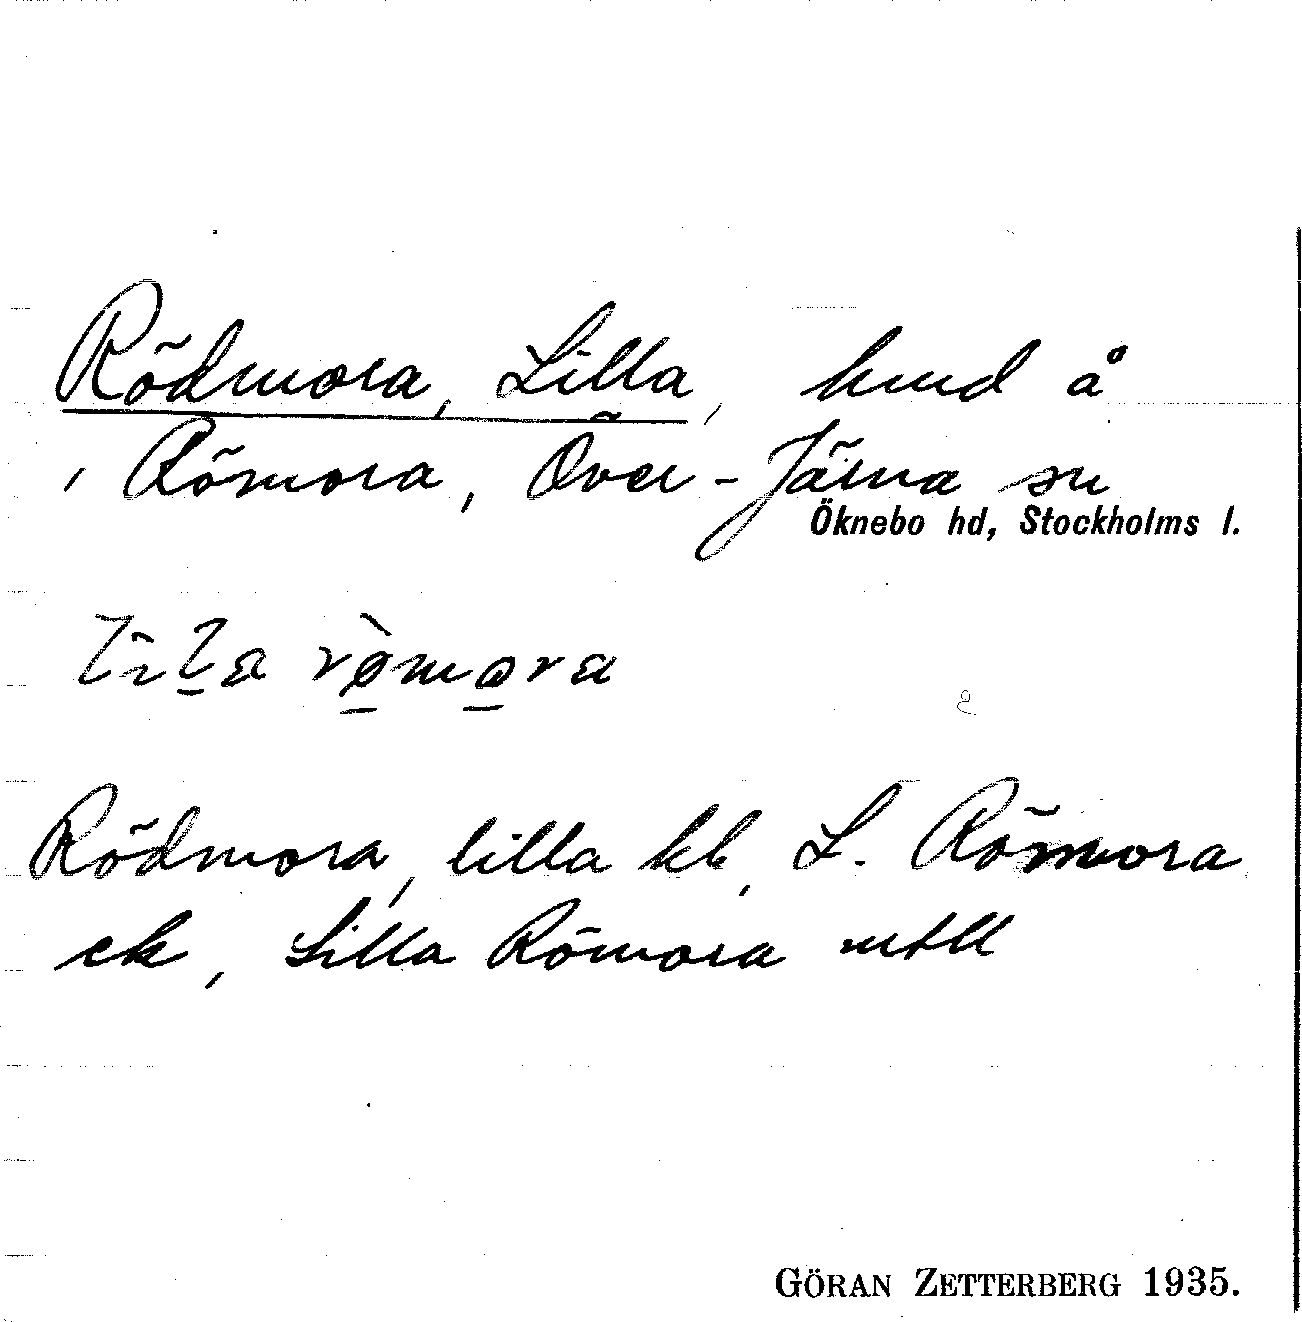 Rödmora, Lilla, hmd å
, Römora, Över-Järna sn
Öknebo hd, Stockholms l.
Rödmora, lilla kb, L. Römora
ek, Lilla Römora mtll
GÖRAN ZETTERBERG 1935.